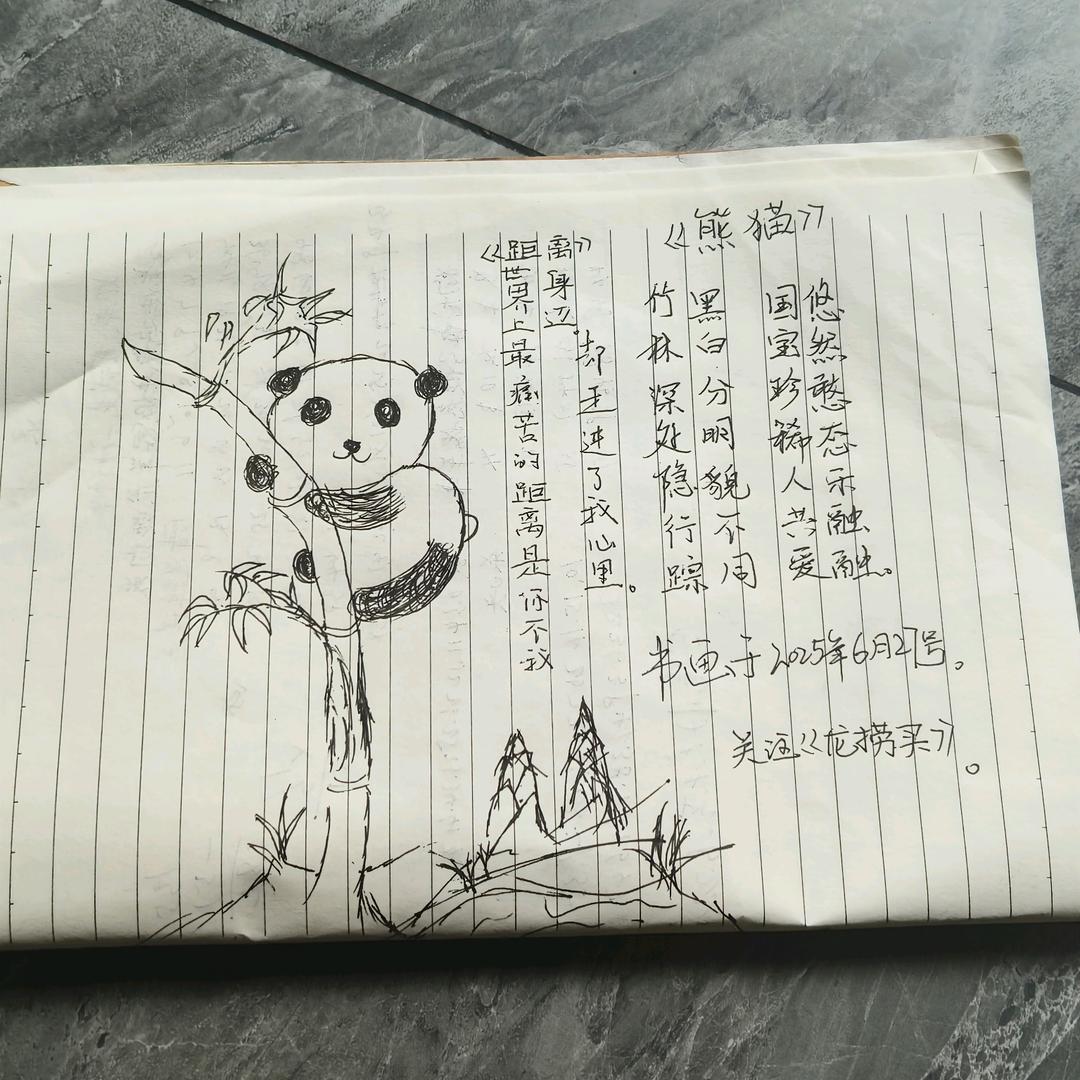 《熊猫》
竹林深处隐行踪
黑白分明貌不同
国宝珍稀人共爱
悠然憨态乐融融。
《距离》
世界上最痛苦的距离是你不我
身边,
却走进了我心里。
书画于2025年6月27号。
关注《龙捞买》。